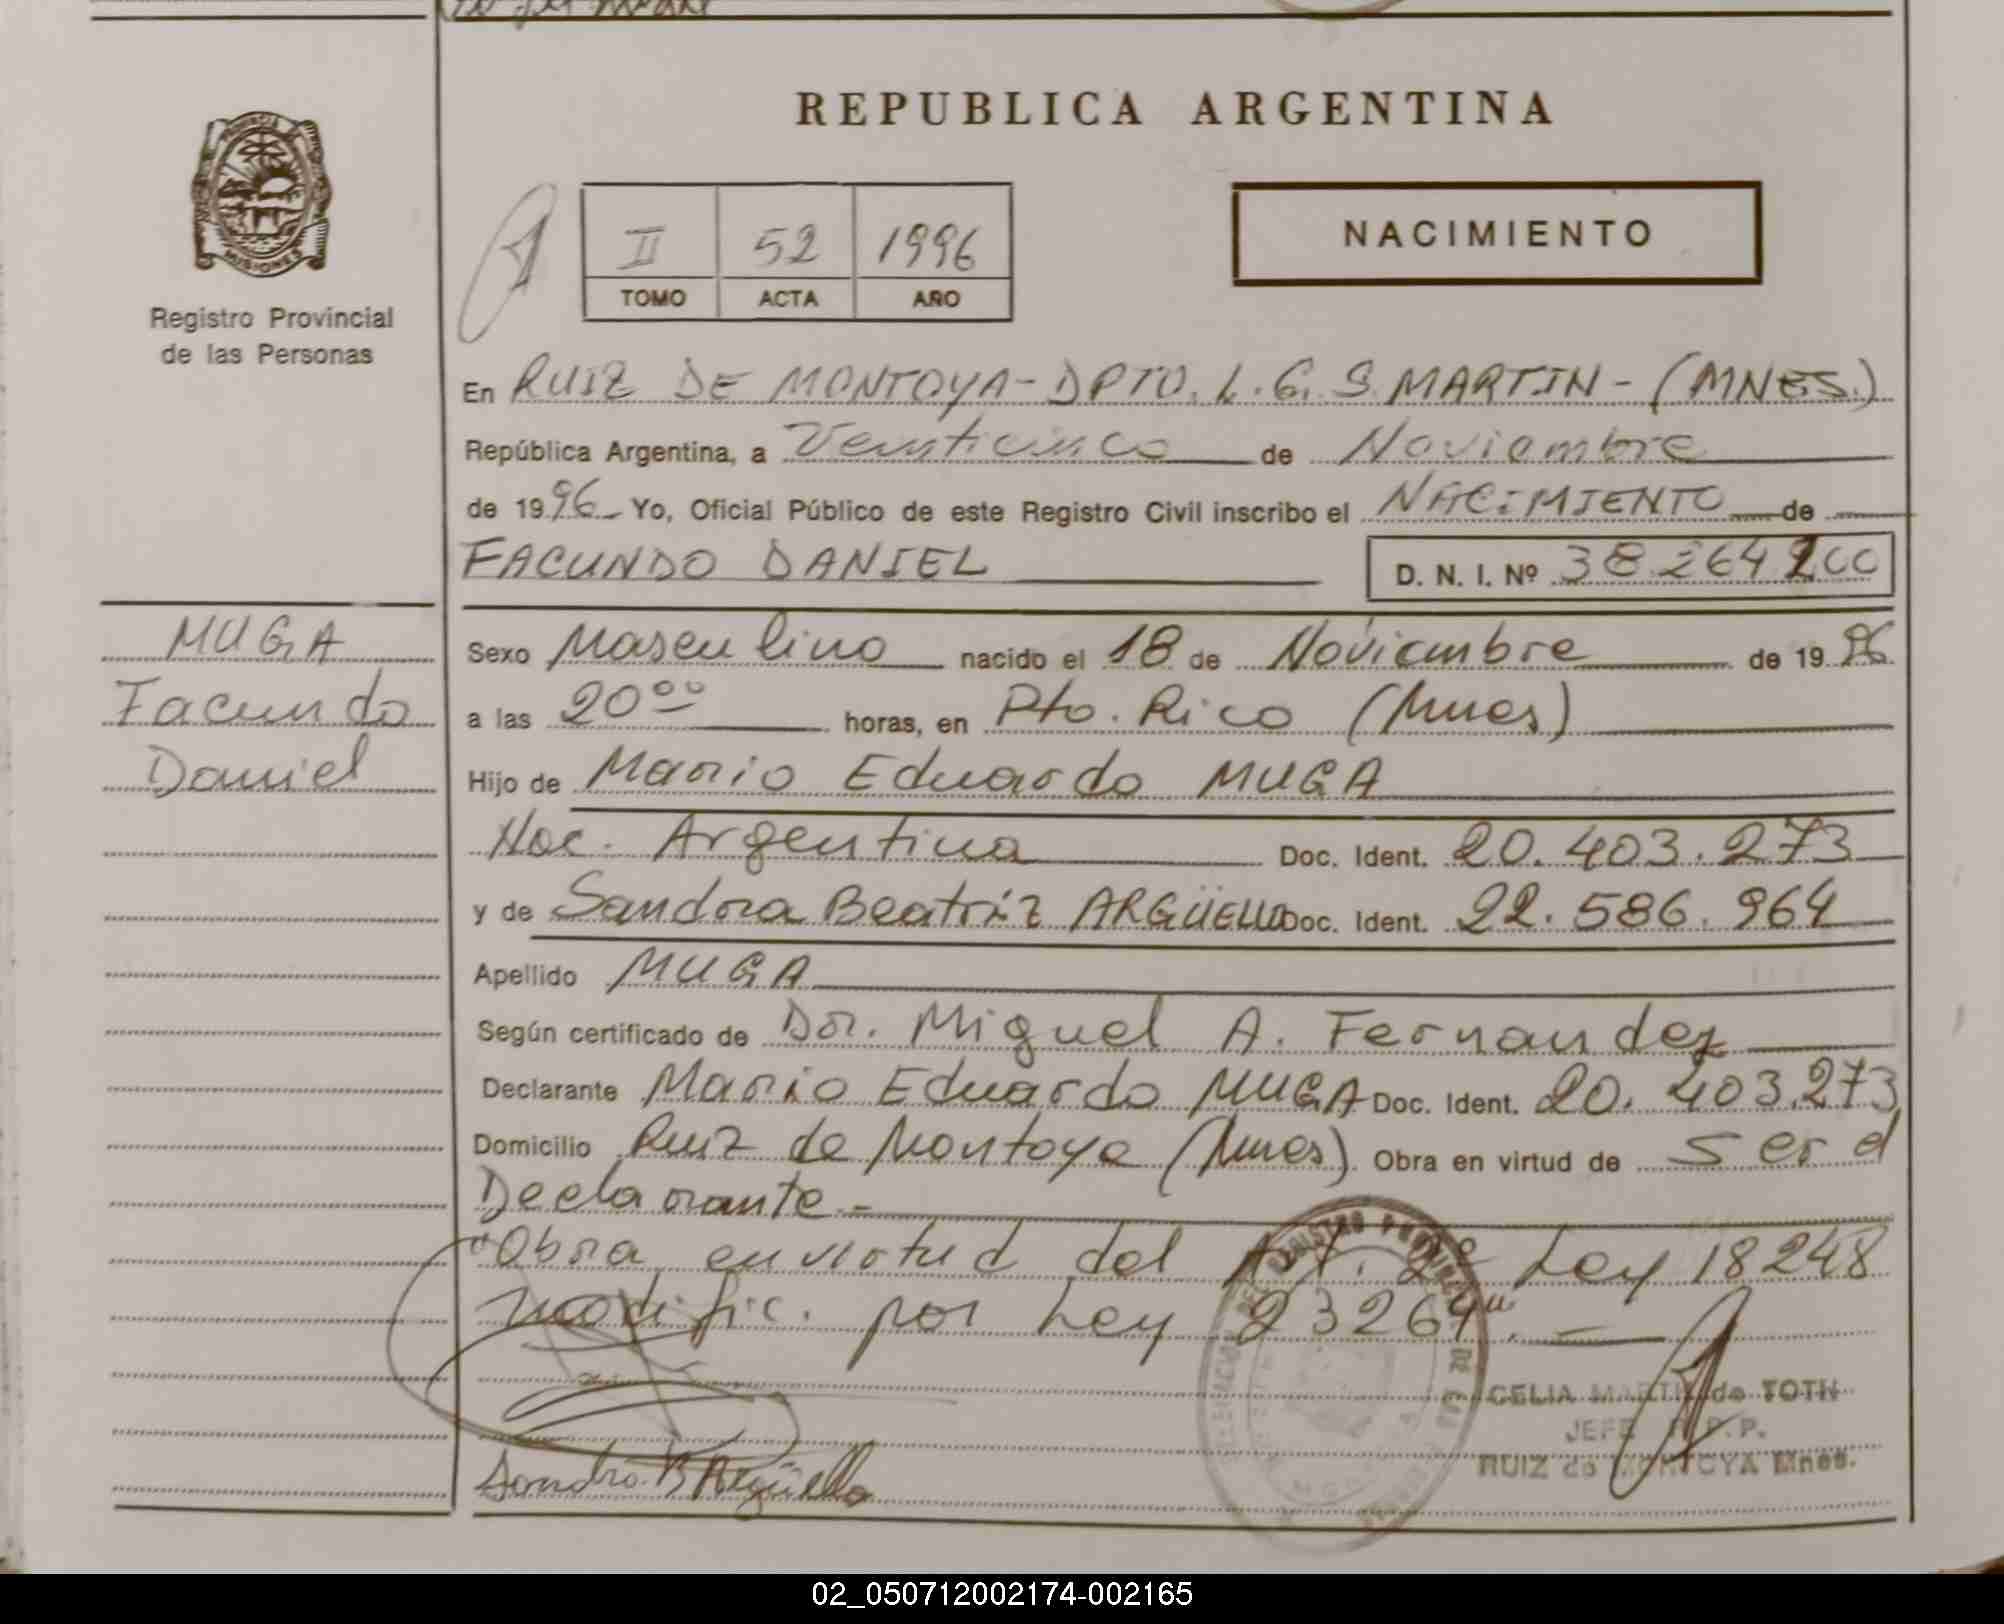 REPUBLICA ARGENTINA
PROVINCIA DE
MISIONES
Registro Provincial
de las Personas
II 52 1996
TOMO ACTA AÑO
NACIMIENTO
En RUIZ DE MONTOYA-DPTO. L.G.S.MARTIN-(MNES.)
República Argentina, a Veinticinco de Noviembre
de 1996 Yo, Oficial Público de este Registro Civil inscribo el NACIMIENTO de
FACUNDO DANIEL D. N. I. Nº 38.264200
MUGA
Facundo
Daniel
Sexo Masculino nacido el 18 de Noviembre de 1996
a las 20⁰⁰ horas, en Pto. Rico (Mnes)
Hijo de Mario Eduardo MUGA
Nac. Argentina Doc. Ident. 20.403.273
y de Sandra Beatriz ARGÜELLO Doc. Ident. 22.586.964
Apellido MUGA
Según certificado de Dr. Miguel A. Fernandez
Declarante Mario Eduardo MUGA Doc. Ident. 20.403.273
Domicilio Ruiz de Montoya (Mnes). Obra en virtud de ser el
Declarante.-
"Obra en virtud del Art. 2º Ley 18248
modific. por Ley 23264".
CELIA MARTIN de TOTH
JEFE R.P.P.
RUIZ de MONTOYA Mnes.
Sandra B Argüello
02_050712002174-002165